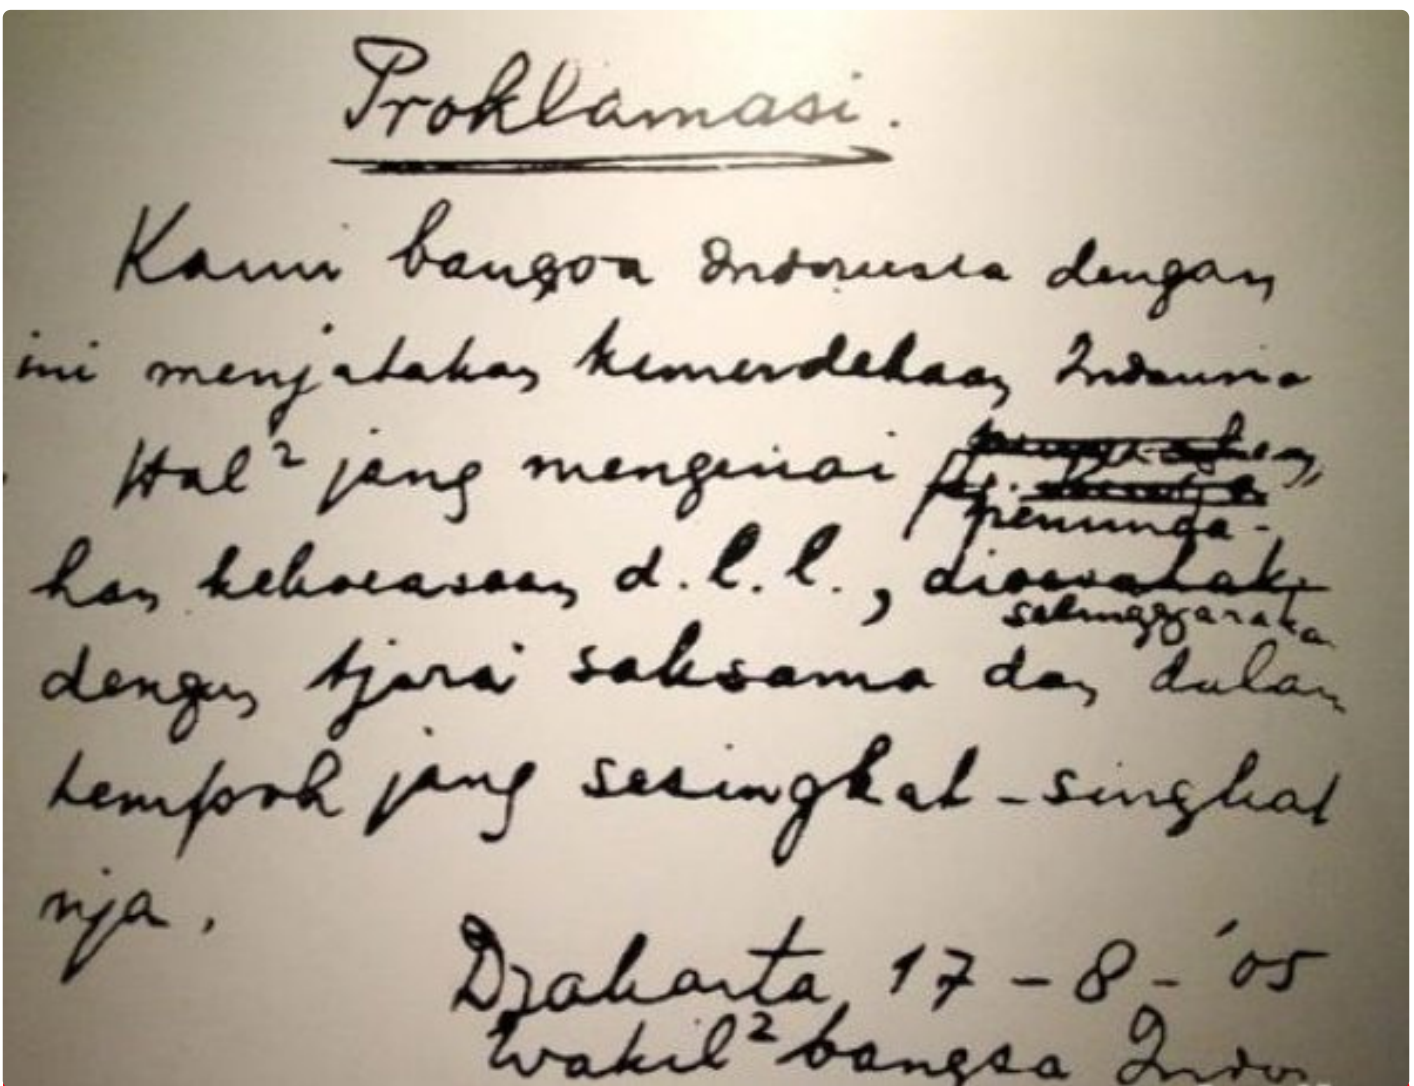 Proklamasi.
Kami bangsa Indonesia dengan
ini menjatakan kemerdekaan Indonesia
Hal² jang mengenai
peminda-
han kekoeasaan d.l.l.,
diselenggaraka
dengan tjara saksama dan dalam
tempoh jang sesingkat-singkat
nja.
Djakarta 17 - 8 - '05
Wakil² bangsa Indon